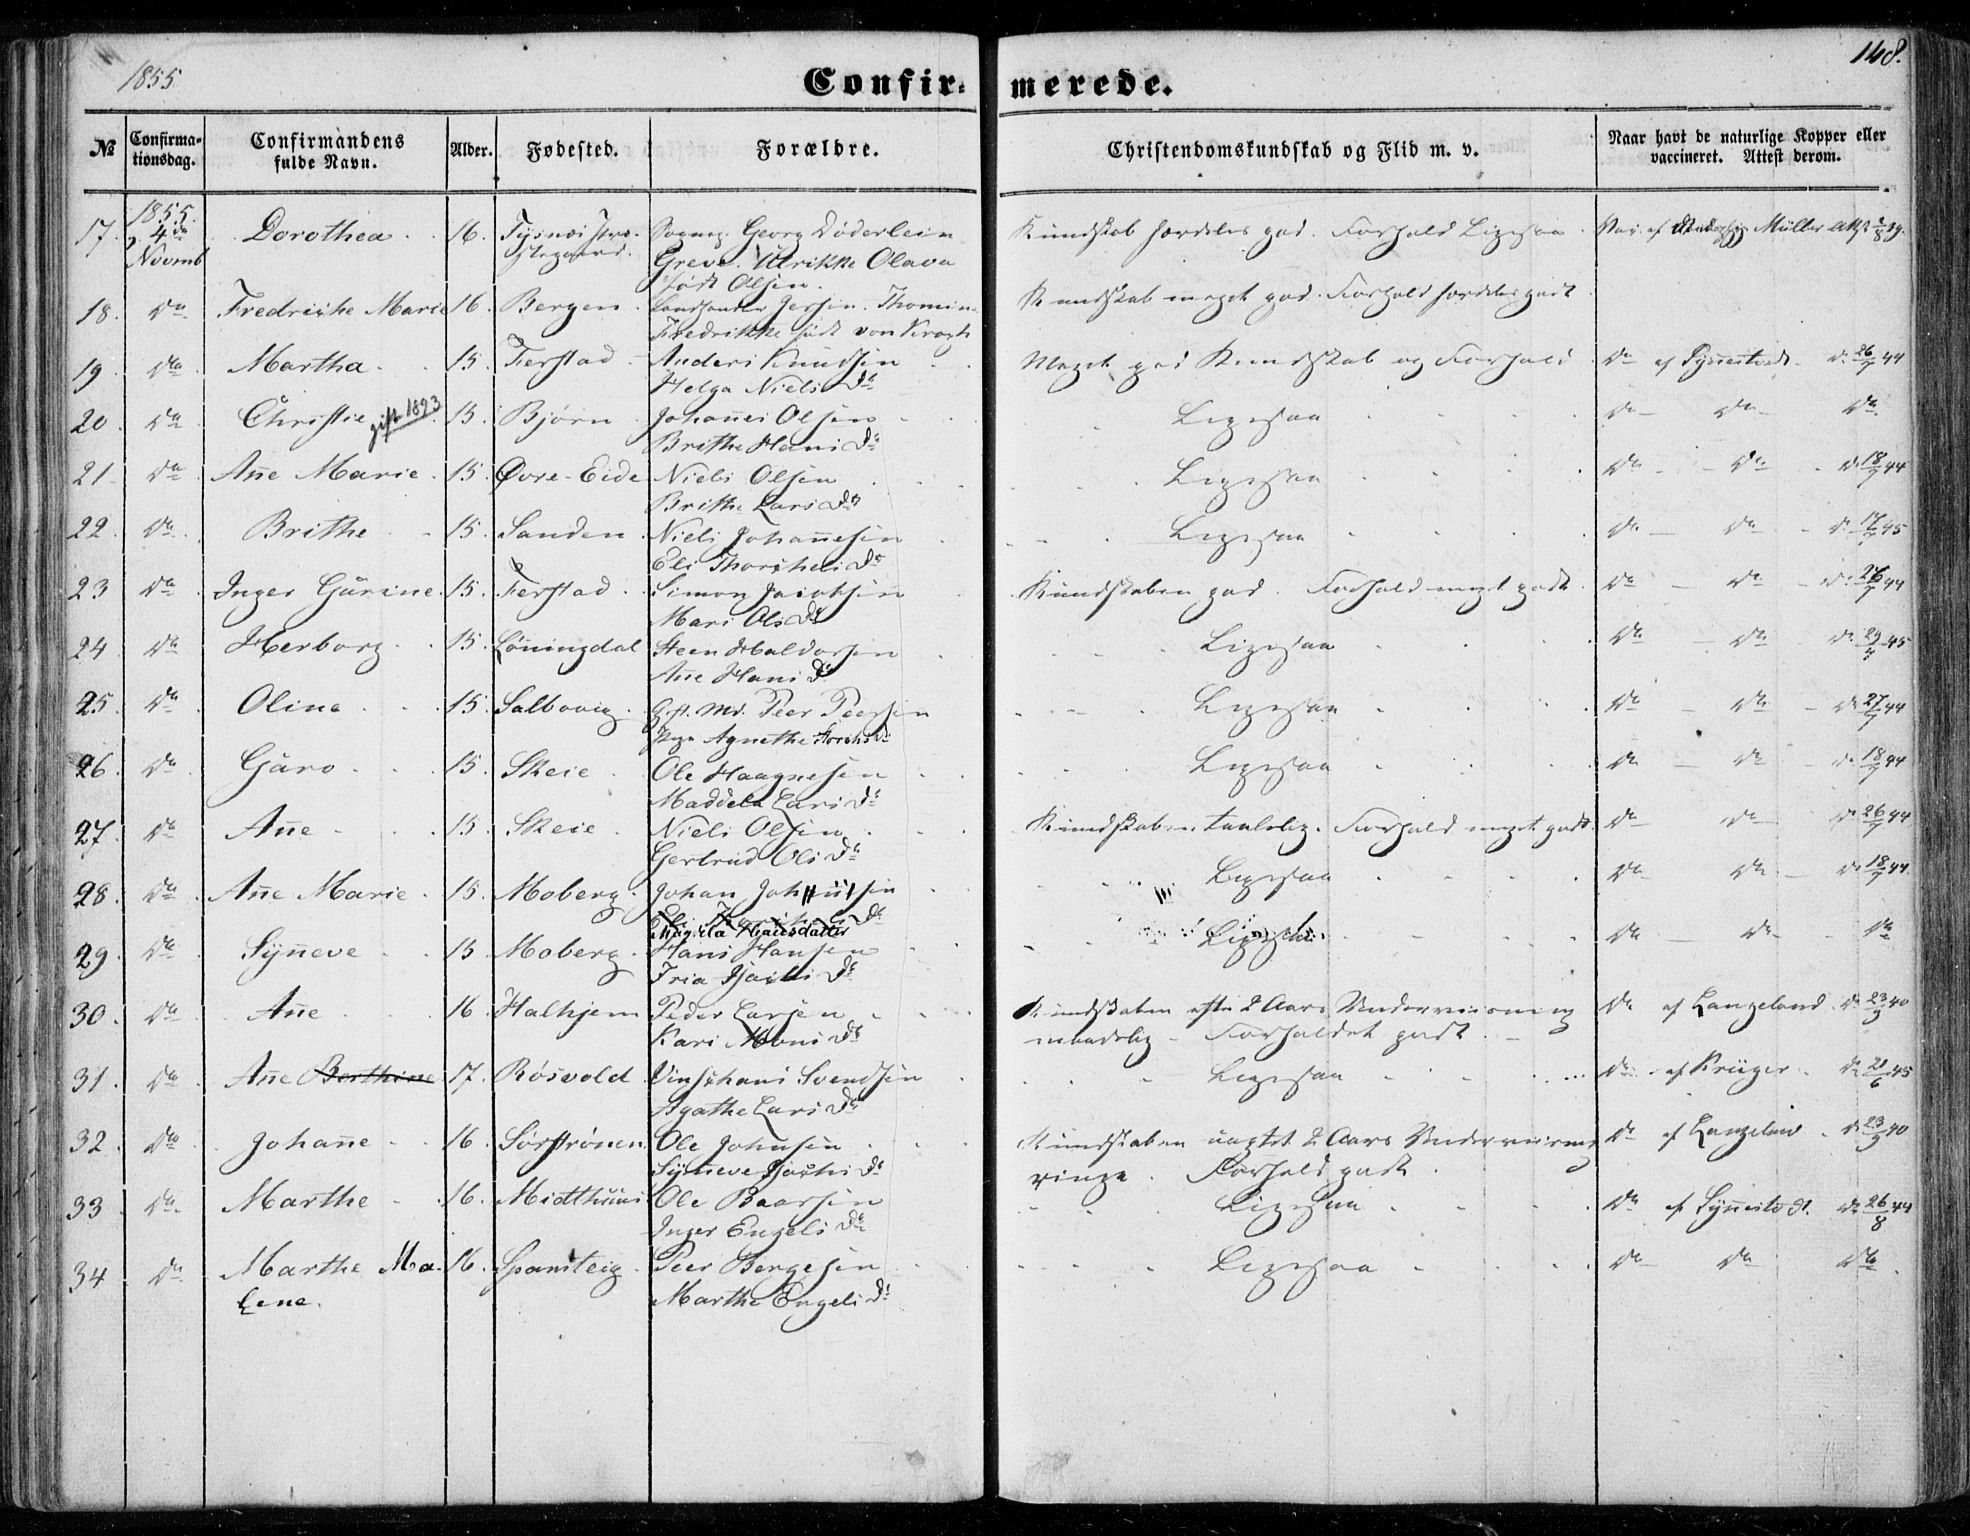 1855
148.
Confir-merede.
№ Confirmationsdag. Confirmandens fulde Navn. Alder. Fødested. Forældre. Christendomskundskab og Flid m. v. Naar havt de naturlige Kopper eller vaccineret. Attest derom.
17. 1855. 4de Novemb Dorothea 16. Tysnæs Sogn. Georg Døderlein Kundskab særdeles god. Forhold Ligesaa Vac. af Müller
Greve. Ulrikke Olava
født Olsen.
18. Do Fredrikke Marie 16. Bergen Jersin. Thomine Kundskab meget god. Forhold særdeles godt
Fredrikke født von Krogh
19. Do Martha 15. Ferstad Anders Knudsen Meget god Kundskab og Forhold Do af Synnestvedt Do 26/7 44
Helga Niels Dr
20. Do Christie gift 1893 15. Bjørn Johañes Olsen Ligesaa Do Do Do
Brithe Hans Dr
21. Do Añe Marie 15. Øvre-Eide Niels Olsen Ligesaa Do Do Do 18/7 44
Brithe Lars Dr
22. Do Brithe 15. Sanden Niels Johañesen Ligesaa Do Do Do 45
Eli Thorchels Dr
23 Do Inger Gurine 15. Ferstad Simon Jacobsen Kundskaben god. Forhold meget godt Do Do Do 26/7 44
Mari Ols Dr
24 Do Herborg 15. Løningdal Steen Haldorsen Ligesaa Do Do Do 45
Añe Hans Dr
25. Do Oline 15. Salbovig Gift. Md. Peer Peersen Ligesaa Do Do Do 27/7 44
Pige Agnethe
26. Do Guro 15. Skeie Ole Haagnesen Ligesaa Do Do Do 18/7 44
Maddela Lars Dr
27. Do Añe 15. Skeie Niels Olsen Kundskaben taalelig. Forhold meget godt Do Do Do 26/7 44
Gertrud Ols Dr
28. Do Añe Marie 15. Moberg Johan Ligesaa Do Do Do 18/7 44
Magdela Hansdatter
29. Do Syñeve 15 Moberg Hans Hansen Ligesaa Do Do Do
30. Do Añe 16. Halhjem Peder Larsen Kundskaben efter 2 Aars Underviisning Do af Langeland Do 40
Kari Mons Dr maadelig Forholdet godt.
31. Do Añe Berthine 17. Røsvold Vinschans Svendsen Ligesaa Do af Krüger Do 21/6 45
Agathe Lars Dr
32. Do Johañe 16. Sørstrønen Ole Johnsen Kundskaben uagtet 2 Aars Underviisning Do af Langeland Do 40
Syñeve Dr ringe. Forhold godt
33 Do Marthe 16. Midthuus Ole Baarsen Ligesaa Do af Syñestvdt. Do 26/8 44
Inger Engels Dr
34 Do Marthe Ma- 16. Peer Bergesen Ligesaa Do Do Do
Lene. Marthe Engels Dr